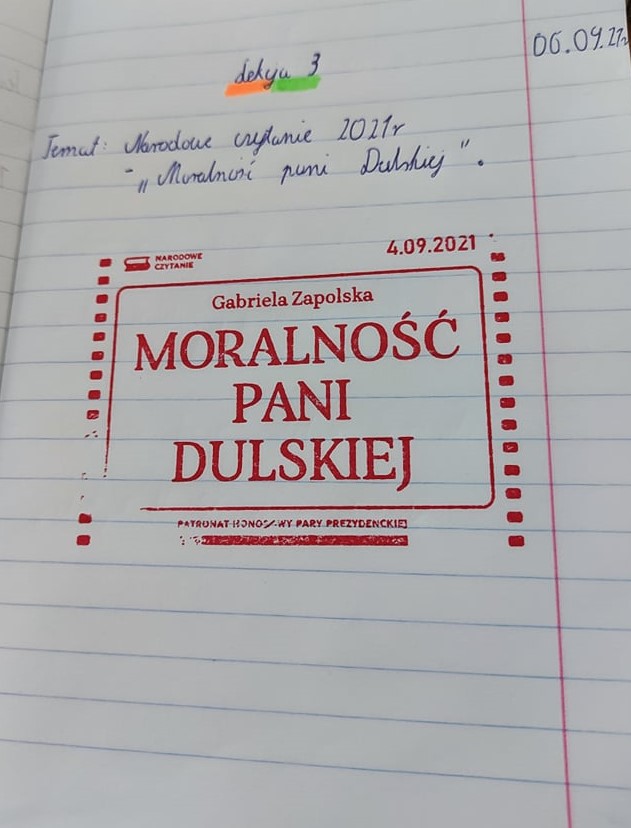 06.09.21r
Lekcja 3
Temat: Narodowe czytanie 2021r
- „Moralność pani Dulskiej”.
NARODOWE
CZYTANIE
4.09.2021
Gabriela Zapolska
MORALNOŚĆ
PANI
DULSKIEJ
PATRONAT HONOROWY PARY PREZYDENCKIEJ